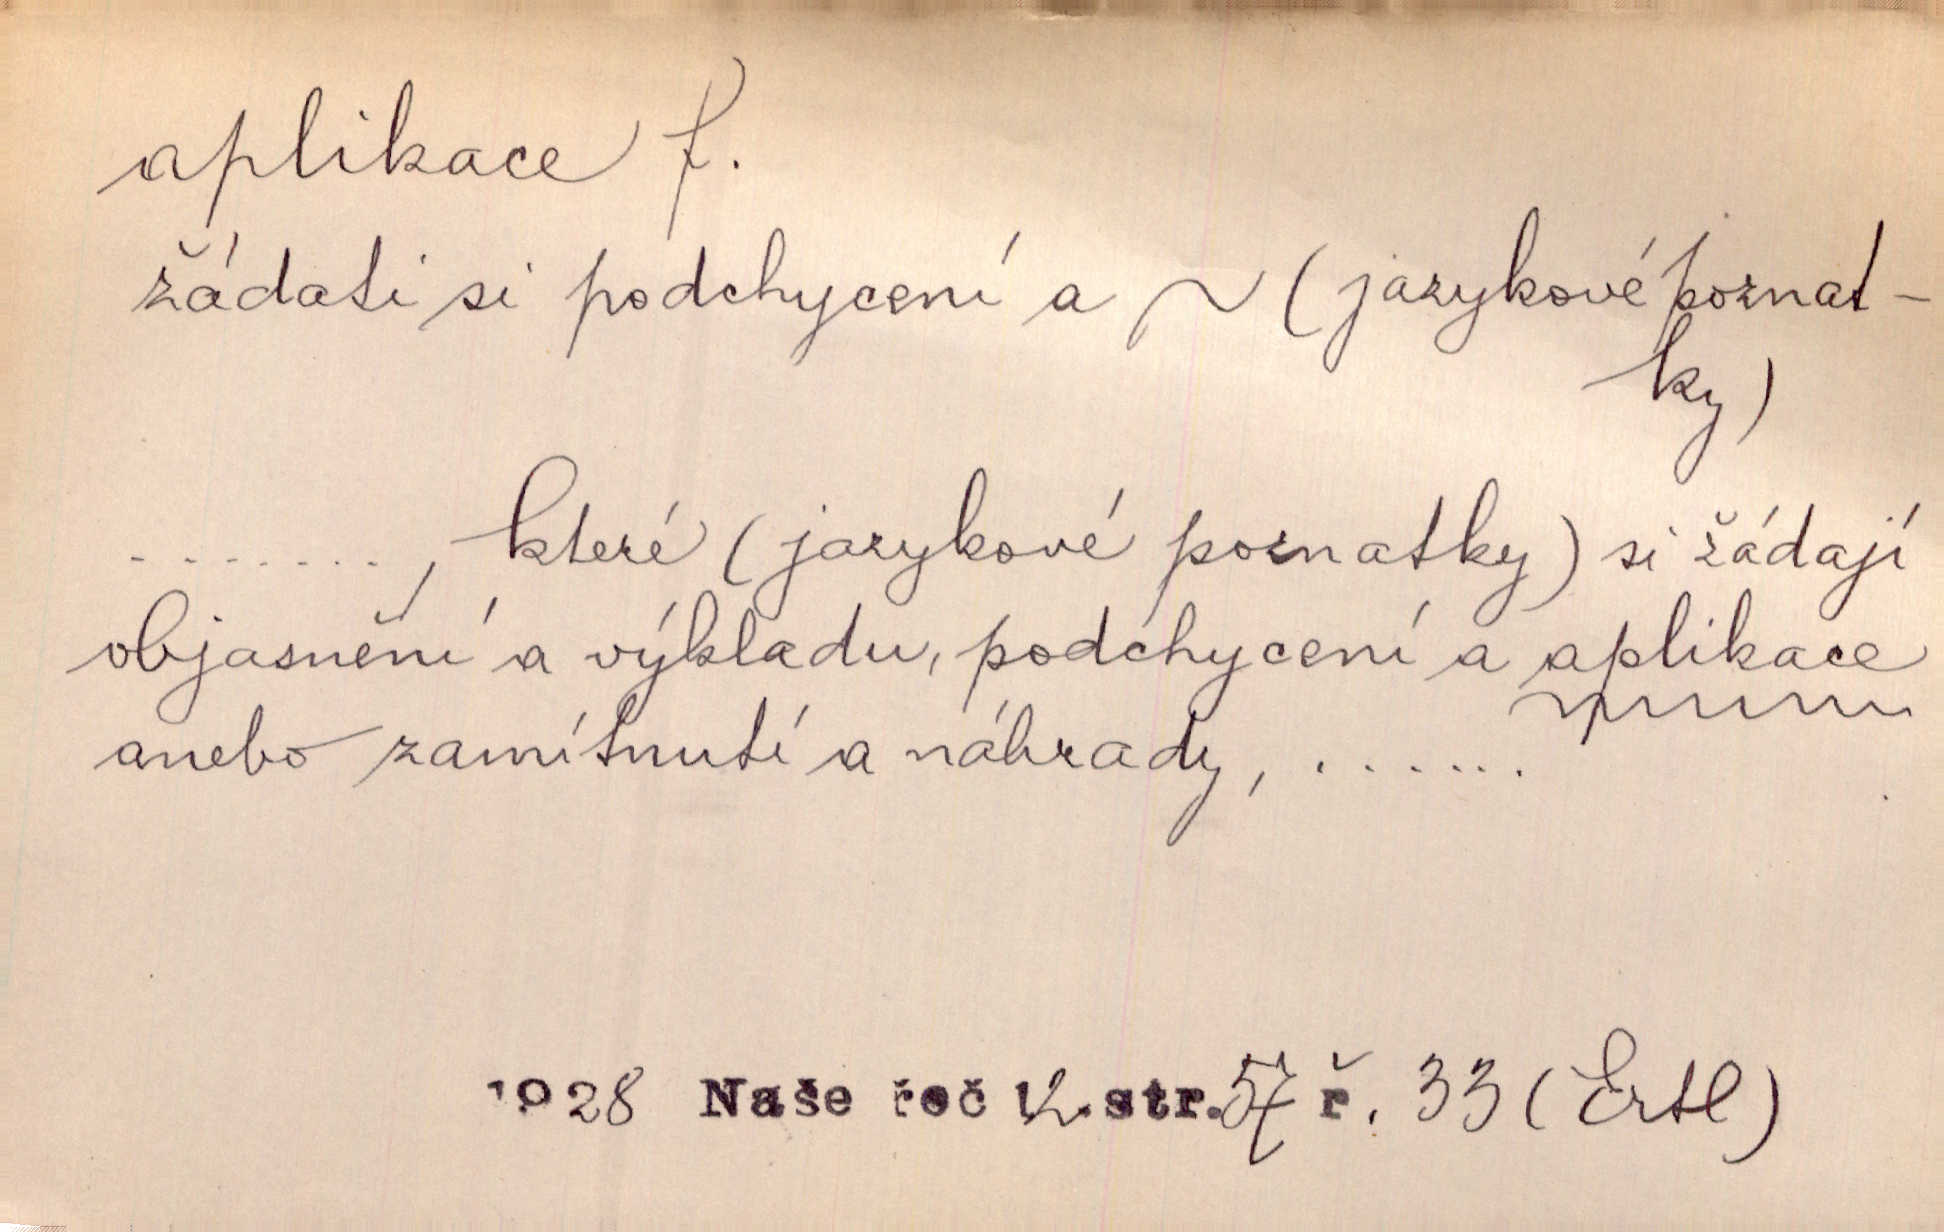 aplikace f.
žádati si podchycení a ~ (jazykové poznat-
ky)
........, které (jazykové poznatky) si žádají
objasnění a výkladu, podchycení a aplikace
anebo zamítnutí a náhrady, .......
1928 Naše řeč 12. str. 57 ř. 33 (Ertl)